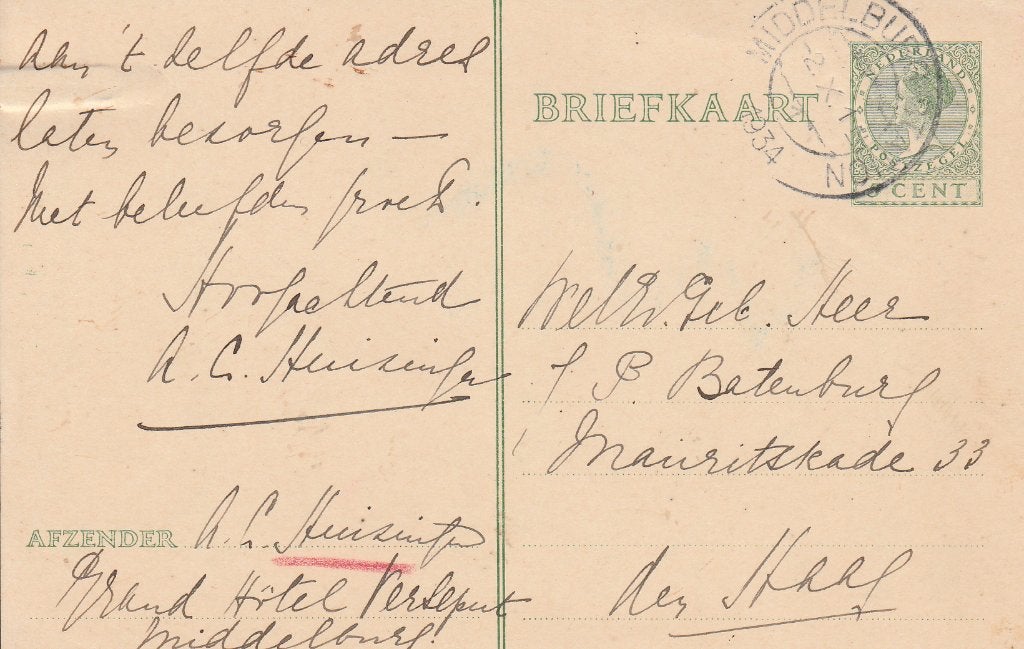 aan 't zelfde adres
laten bezorgen —
Met beleefden groet.
Hoogachtend
A. C. Huisinga
AFZENDER A. C. Huisinga
Grand Hôtel Verseput
Middelburg.
BRIEFKAART
MIDDELBURG
1934
NEDERLAND
POSTZEGEL
CENT
WelEd. Geb. Heer
J P Batenburg
Mauritskade 33
den Haag